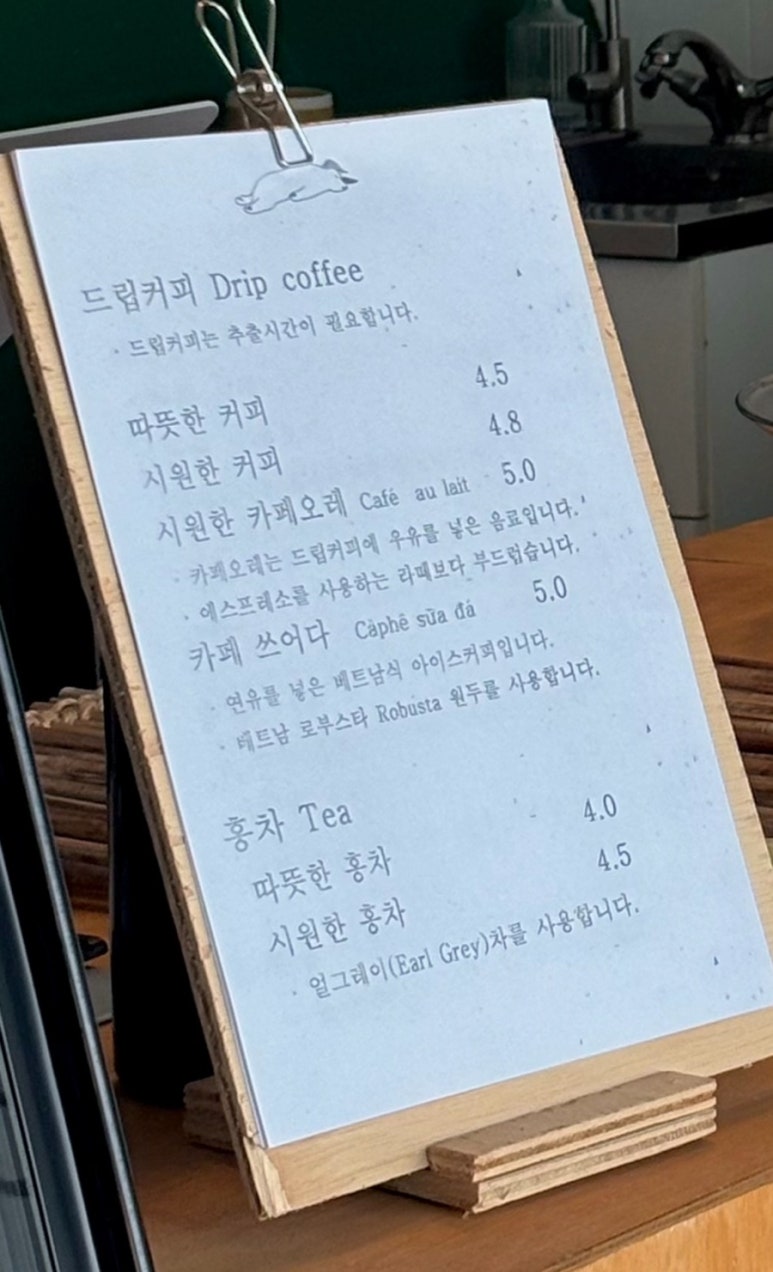 드립커피 Drip coffee
· 드립커피는 추출시간이 필요합니다.
따뜻한 커피 4.5
시원한 커피 4.8
시원한 카페오레 Café au lait 5.0
· 카페오레는 드립커피에 우유를 넣은 음료입니다.
· 에스프레소를 사용하는 라떼보다 부드럽습니다.
카페 쓰어다 Càphê sūa đá 5.0
· 연유를 넣은 베트남식 아이스커피입니다.
· 베트남 로부스타 Robusta 원두를 사용합니다.
홍차 Tea
따뜻한 홍차 4.0
시원한 홍차 4.5
· 얼그레이(Earl Grey)차를 사용합니다.